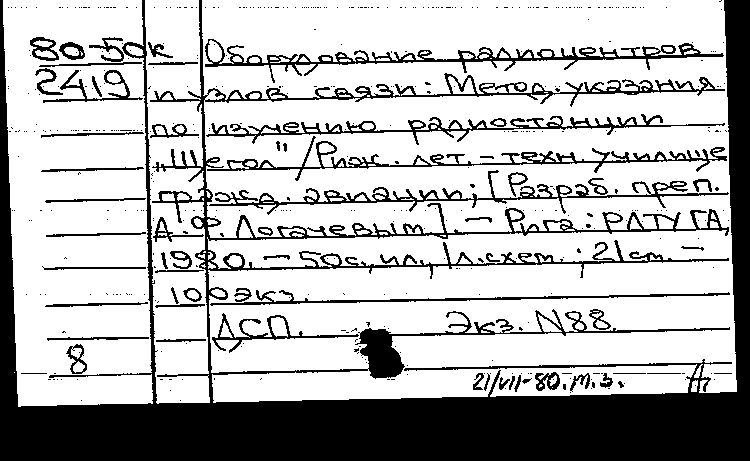 80-50к Оборудование радиоцентров
2419 и узлов связи: Метод. указания
по изучению радиостанции
„Щегол" / Риж. лет.-техн. училище
гражд. авиации; [Разраб. преп.
А.Ф. Логачевым]. — Рига: РЛТУГА,
1980. — 50с., ил., 1л. схем.; 21 см. —
100экз.
ДСП. Экз. N88.
8
21/VII-80. т.з.